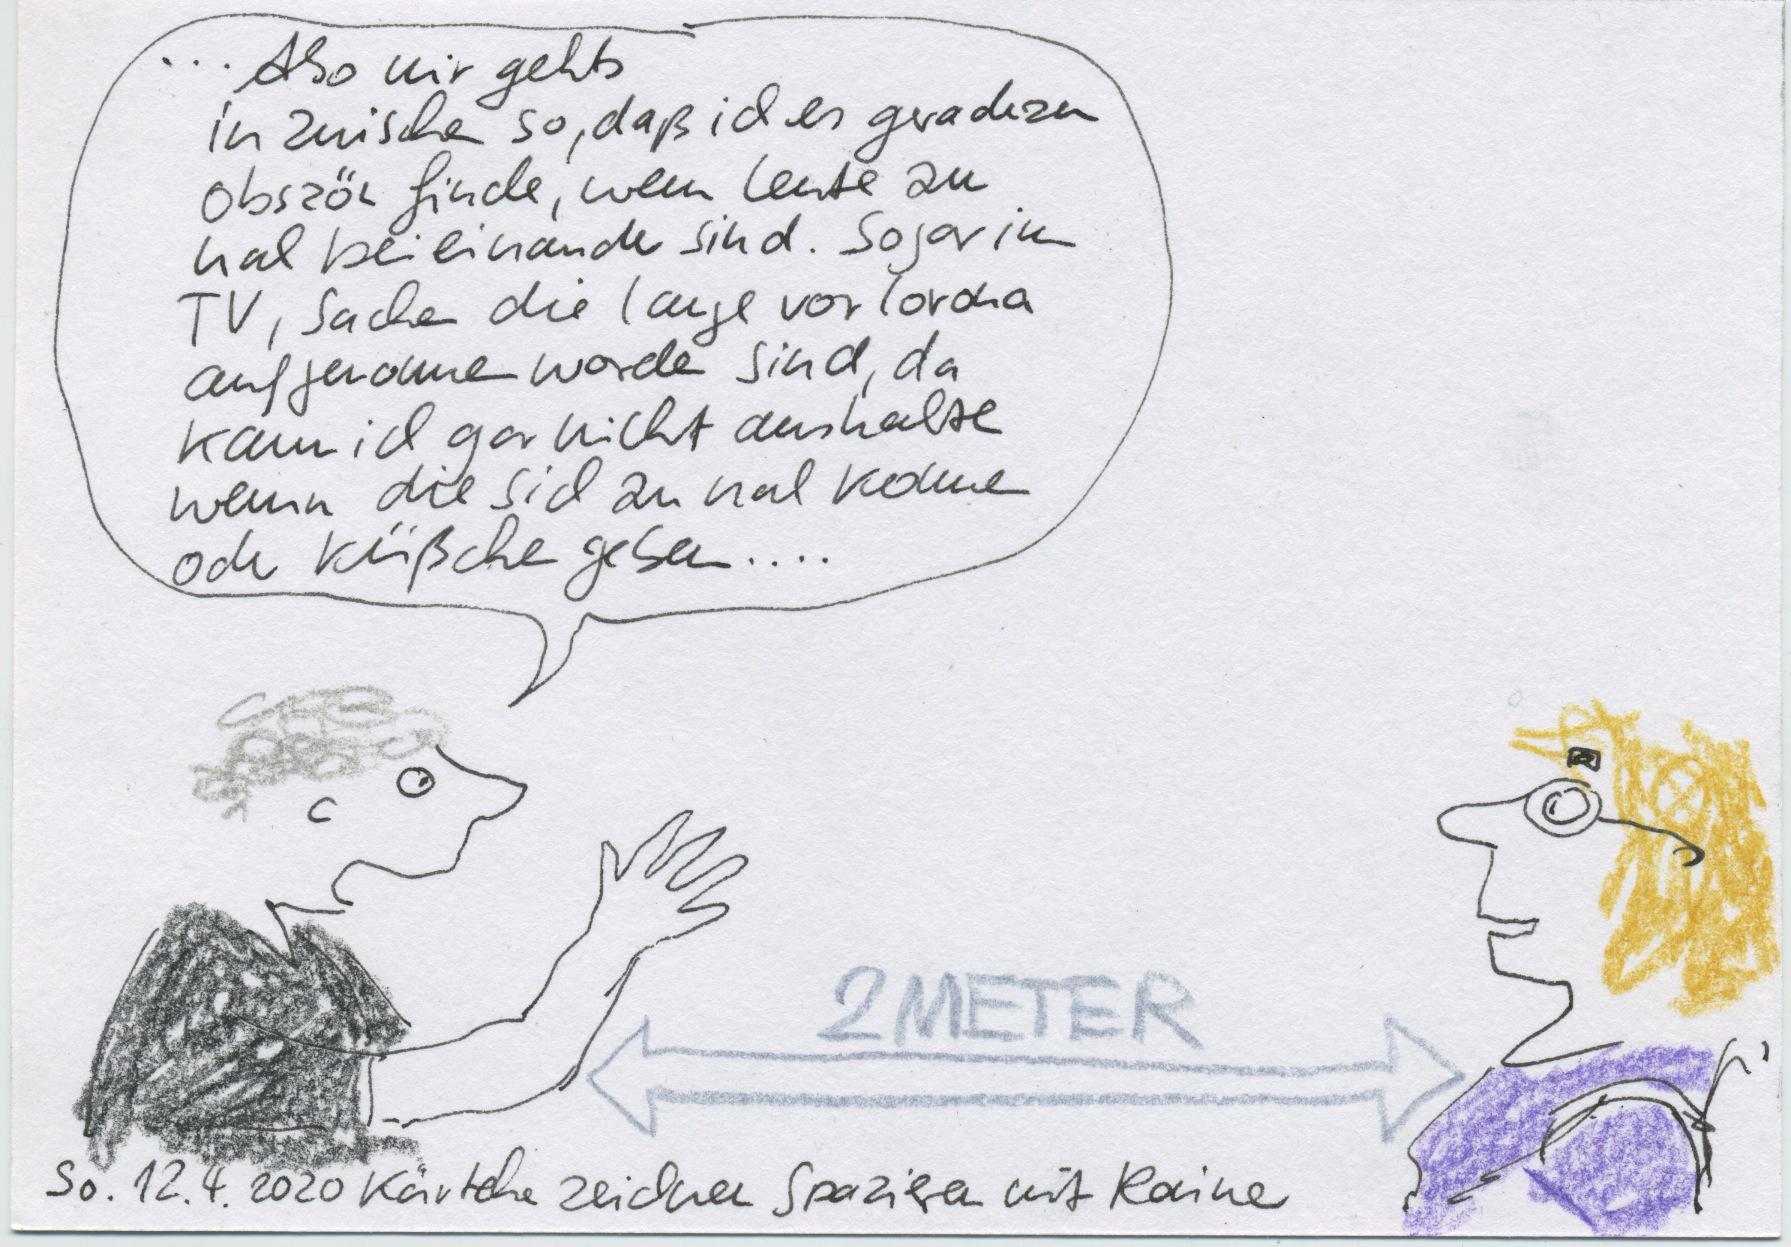 ... Also mir gehts
inzwischen so, daß ich es geradezu
obszön finde, wenn Leute zu
nah beieinander sind. Sogar im
TV, Sachen die lange vor Corona
aufgenommen worden sind, da
kann ich gar nicht aushalten
wenn die sich zu nah kommen
oder Küßchen geben....
2 METER
So. 12.4.2020 Kärtchen zeichnen Spazieren mit Rainer